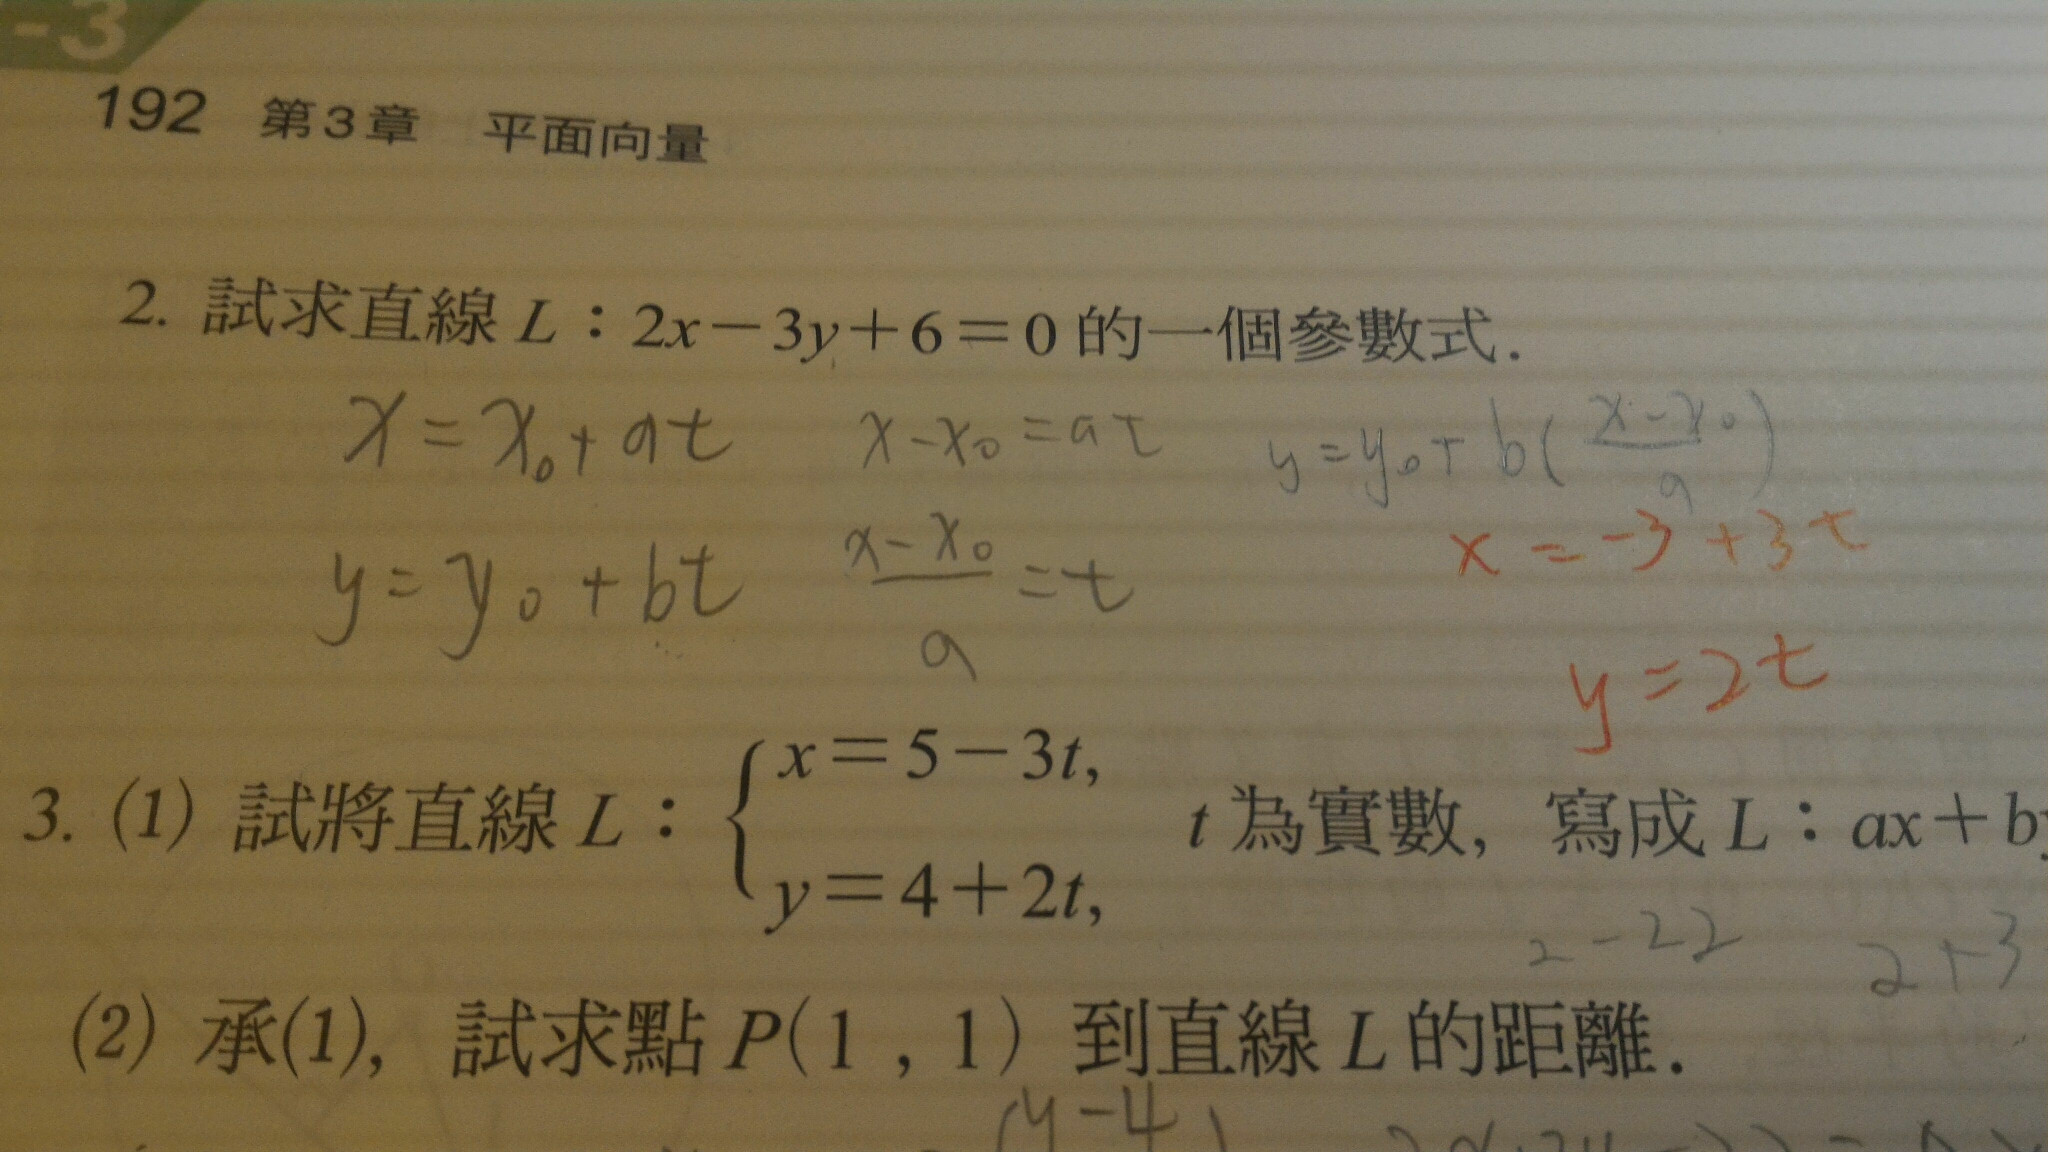 -3
192 第3章 平面向量
2. 試求直線 L：2x－3y＋6＝0 的一個參數式．
x = x₀ + at x - x₀ = at y = y₀ + b(\frac{x - x₀}{a})
x = -3 + 3t
y = y₀ + bt \frac{x - x₀}{a} = t
y = 2t
3. (1) 試將直線 L：{ x＝5－3t, y＝4＋2t, t 為實數，寫成 L：ax＋by
2 - 22 2 + 3
(2) 承(1)，試求點 P(1 , 1) 到直線 L 的距離．
(y - 4)